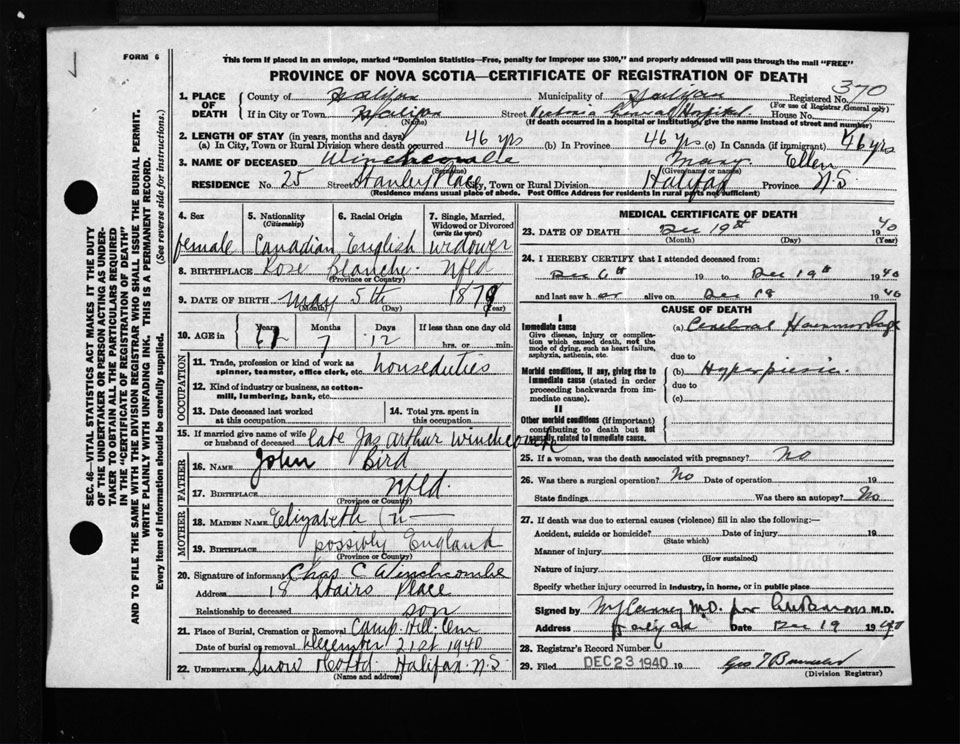 FORM 6
This form if placed in an envelope, marked "Dominion Statistics—Free, penalty for improper use $300," and properly addressed will pass through the mail "FREE"
PROVINCE OF NOVA SCOTIA—CERTIFICATE OF REGISTRATION OF DEATH
370
1. PLACE OF DEATH County of Halifax Municipality of Halifax Registered No.
(For use of Registrar General only)
If in City or Town Halifax Street Victoria General Hospital House No.
(Name) (If death occurred in a hospital or institution, give the name instead of street and number)
2. LENGTH OF STAY (in years, months and days)
(a) In City, Town or Rural Division where death occurred 46 yrs (b) In Province 46 yrs (c) In Canada (if immigrant) 46 yrs
3. NAME OF DECEASED Winchcombe Mary Ellen
(Surname) (Given name or names)
RESIDENCE No. 25 Street Stanley Place City, Town or Rural Division Halifax Province N.S.
(Residence means usual place of abode. Post Office Address for residents in rural parts not sufficient)
4. Sex 5. Nationality (Citizenship) 6. Racial Origin 7. Single, Married, Widowed or Divorced (write the word)
female Canadian English widower
8. BIRTHPLACE Rose Blanche Nfld
(Province or Country)
9. DATE OF BIRTH May 5th 1879
(Month) (Day)
10. AGE in Years Months Days If less than one day old
7 12 hrs. or min.
OCCUPATION
11. Trade, profession or kind of work as spinner, teamster, office clerk, etc. houseduties
12. Kind of industry or business, as cotton-mill, lumbering, bank, etc.
13. Date deceased last worked at this occupation 14. Total yrs. spent in this occupation
15. If married give name of wife or husband of deceased late Jas Arthur Winchcombe
FATHER
16. NAME John Bird
17. BIRTHPLACE Nfld.
(Province or Country)
MOTHER
18. MAIDEN NAME Elizabeth
19. BIRTHPLACE possibly England
(Province or Country)
20. Signature of informant Chas C Winchcombe
Address 18 Stairs Place
Relationship to deceased son
21. Place of Burial, Cremation or Removal Camp Hill Cem
Date of burial or removal December 21st 1940
22. UNDERTAKER Snow & Co Ltd. Halifax N.S.
(Name and address)
MEDICAL CERTIFICATE OF DEATH
23. DATE OF DEATH Dec 19th 1940
(Month) (Day) (Year)
24. I HEREBY CERTIFY that I attended deceased from:
Dec 6th 19 to Dec 19th 1940
and last saw her alive on Dec 18 1940
CAUSE OF DEATH
I
Immediate cause (a) Cerebral Haemorrhage
Give disease, injury or complication which caused death, not the mode of dying, such as heart failure, asphyxia, asthenia, etc.
due to
Morbid conditions, if any, giving rise to immediate cause (stated in order proceeding backwards from immediate cause).
(b) Hyperpiesia
due to
(c)
II
Other morbid conditions (if important) contributing to death but not causally related to immediate cause.
25. If a woman, was the death associated with pregnancy? No
26. Was there a surgical operation? No Date of operation 19
State findings Was there an autopsy? No
27. If death was due to external causes (violence) fill in also the following:—
Accident, suicide or homicide? Date of injury 19
(State which)
Manner of injury
(How sustained)
Nature of injury
Specify whether injury occurred in industry, in home, or in public place
Signed by M.D. for M.D.
Address Halifax Date Dec 19 1940
28. Registrar's Record Number
29. Filed DEC 23 1940 19
(Division Registrar)
SEC. 46—VITAL STATISTICS ACT MAKES IT THE DUTY
OF THE UNDERTAKER OR PERSON ACTING AS UNDER-
TAKER TO OBTAIN ALL THE PARTICULARS REQUIRED
IN THE "CERTIFICATE OF REGISTRATION OF DEATH"
AND TO FILE THE SAME WITH THE DIVISION REGISTRAR WHO SHALL ISSUE THE BURIAL PERMIT.
WRITE PLAINLY WITH UNFADING INK. THIS IS A PERMANENT RECORD.
Every item of information should be carefully supplied. (See reverse side for instructions.)